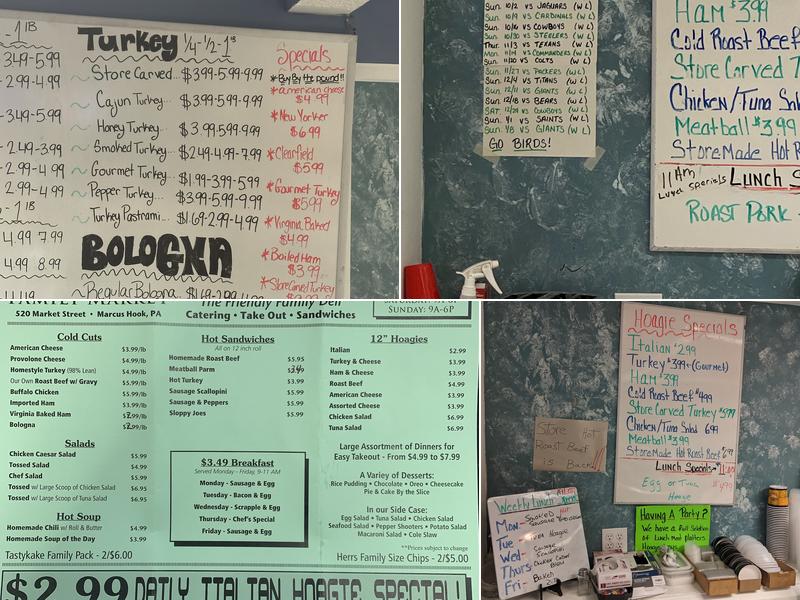 - 1 LB
3.49-5.99
2.99-4.99
3.49-5.99
2.49-3.99
2.99-4.99
2.99-4.99
- 1 LB
4.99 7.99
4.99 8.99
Turkey 1/4-1/2-1 lb
Store Carved... $3.99-5.99-9.99
Cajun Turkey... $3.99-5.99-9.99
Honey Turkey... $3.99-5.99-9.99
Smoked Turkey... $2.49-4.99-7.99
Gourmet Turkey... $1.99-3.99-5.99
Pepper Turkey... $3.99-5.99-9.99
Turkey Pastrami... $1.69-2.99-4.99
BOLOGNA
Regular Bologna..
Specials
*By the pound!!
*American Cheese
$4.99
*New Yorker
$6.99
*Clearfield
$5.99
*Gourmet Turkey
$5.99
*Virginia Baked
$4.99
*Boiled Ham
$3.99
*Store Carved Turkey
Sun. 10/2 vs JAGUARS (W L)
Sun. 10/9 vs CARDINALS (W L)
Sun. 10/16 vs COWBOYS (W L)
Sun. 10/30 vs STEELERS (W L)
Thur. 11/3 vs TEXANS (W L)
Mon. 11/14 vs COMMANDERS (W L)
Sun. 11/20 vs COLTS (W L)
Sun. 11/27 vs PACKERS (W L)
Sun. 12/4 vs TITANS (W L)
Sun. 12/11 vs GIANTS (W L)
Sun. 12/18 vs BEARS (W L)
SAT. 12/24 vs COWBOYS (W L)
Sun. 1/1 vs SAINTS (W L)
Sun. 1/8 vs GIANTS (W L)
GO BIRDS!
Ham $3.99
Cold Roast Beef
Store Carved T
Chicken/Tuna Sal
Meatball $3.99
Store Made Hot R
11 AM
Lunch Specials
Lunch S
ROAST PORK -
FAMILY MARKET
520 Market Street • Marcus Hook, PA
The Friendly Family Deli
Catering • Take Out • Sandwiches
SUNDAY: 9A-6P
Cold Cuts
American Cheese $3.99/lb
Provolone Cheese $4.99/lb
Homestyle Turkey (98% Lean) $4.99/lb
Our Own Roast Beef w/ Gravy $5.99/lb
Buffalo Chicken $5.99/lb
Imported Ham $3.99/lb
Virginia Baked Ham
Bologna
Salads
Chicken Caesar Salad $5.99
Tossed Salad $4.99
Chef Salad $5.99
Tossed w/ Large Scoop of Chicken Salad $6.95
Tossed w/ Large Scoop of Tuna Salad $6.95
Hot Soup
Homemade Chili w/ Roll & Butter $4.99
Homemade Soup of the Day $3.99
Tastykake Family Pack - 2/$6.00
Hot Sandwiches
All on 12 inch roll
Homemade Roast Beef $5.95
Meatball Parm
Hot Turkey $3.99
Sausage Scallopini $5.99
Sausage & Peppers $5.99
Sloppy Joes $5.99
$3.49 Breakfast
Served Monday - Friday, 9-11 AM
Monday - Sausage & Egg
Tuesday - Bacon & Egg
Wednesday - Scrapple & Egg
Thursday - Chef's Special
Friday - Sausage & Egg
12" Hoagies
Italian $2.99
Turkey & Cheese $3.99
Ham & Cheese $3.99
Roast Beef $4.99
American Cheese $3.99
Assorted Cheese $3.99
Chicken Salad $6.99
Tuna Salad $6.99
Large Assortment of Dinners for
Easy Takeout - From $4.99 to $7.99
A Variey of Desserts:
Rice Pudding • Chocolate • Oreo • Cheesecake
Pie & Cake By the Slice
In our Side Case:
Egg Salad • Tuna Salad • Chicken Salad
Seafood Salad • Pepper Shooters • Potato Salad
Macaroni Salad • Cole Slaw
**Prices subject to change
Herrs Family Size Chips - 2/$5.00
$2.99 DAILY ITALIAN HOAGIE SPECIAL!
Hoagie Specials
Italian $2.99
Turkey $3.99+ (Gourmet)
Ham $3.99
Cold Roast Beef $4.99
Store Carved Turkey $5.99
Chicken/Tuna Salad 6.99
Meatball $3.99
Store Made Hot Roast Beef
Lunch Specials
Egg or Tuna
Hoagie
Store Hot
Roast Beef
is Back!!
Weekly Lunch
Mon-
Tue
Wed-
Thurs-
Fri-
Having A Party?
We have a Full Selection
of Lunch meat Platters